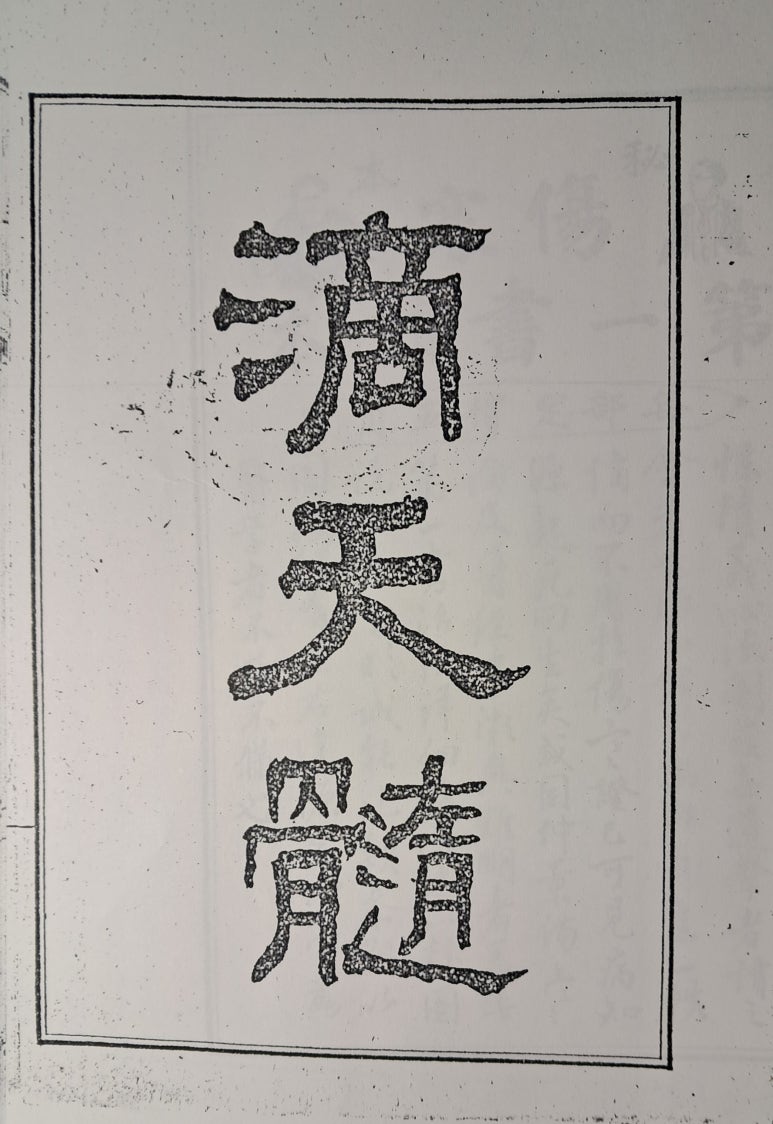 滴天髓